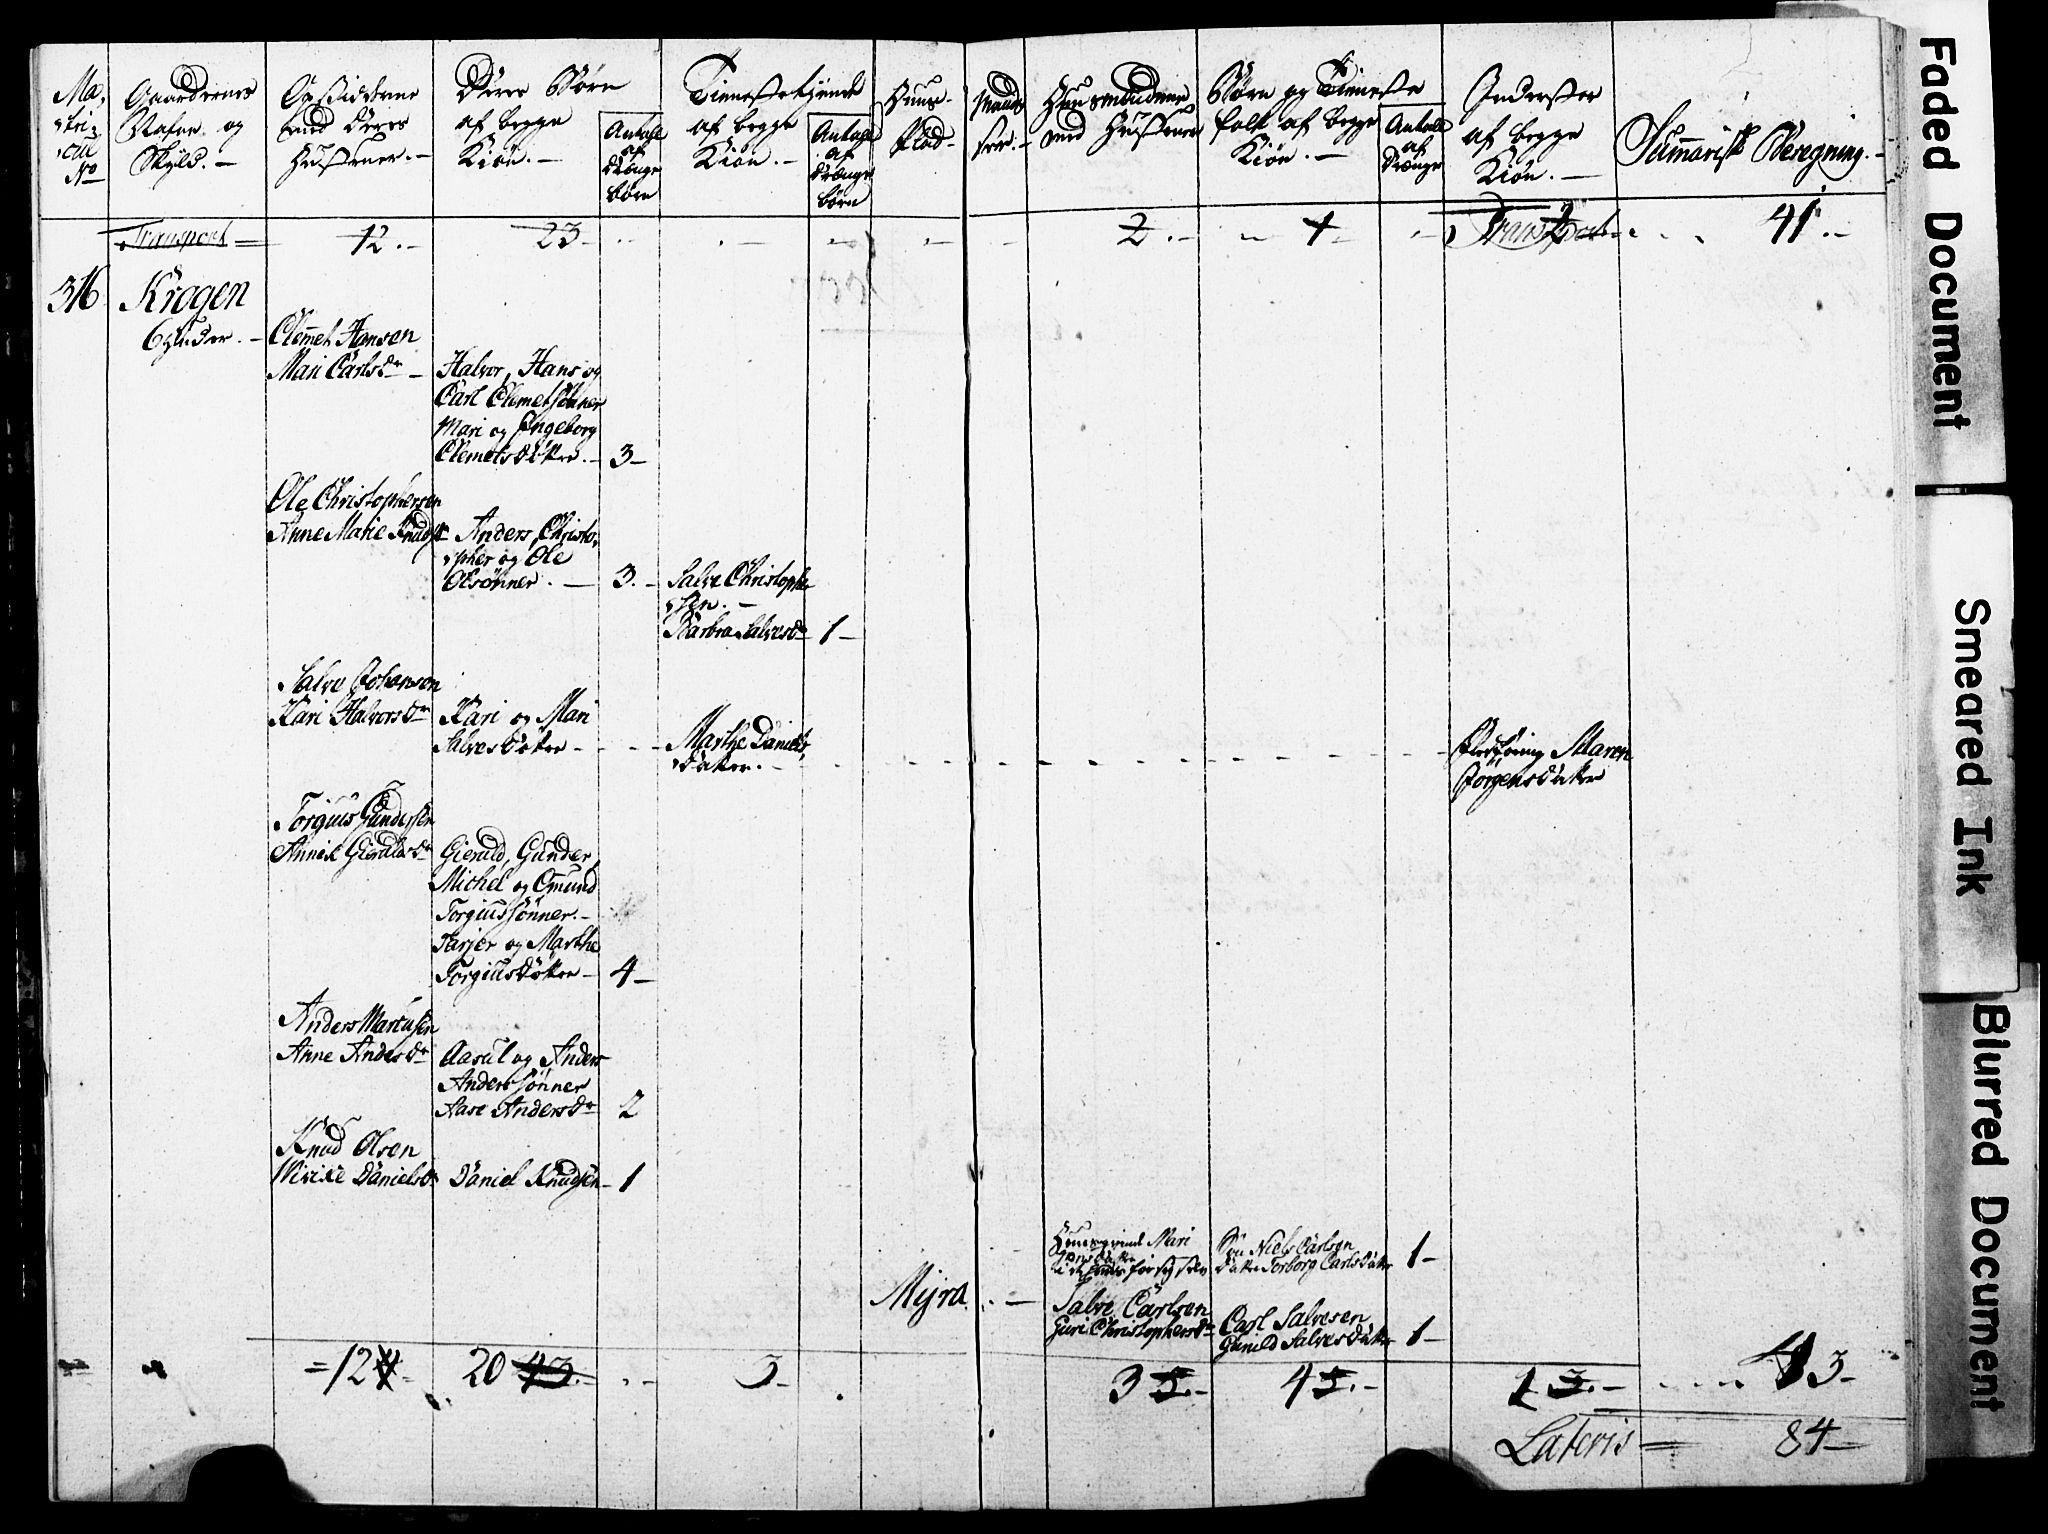 Ma-
tri-
cul
No
Gaardernes
Nafne og
Skyld. —
Opsidderne
med deres
Hustruer. —
Deres Børn
af begge
Kiøn. —
Antall
af
Drænge
børn
Tienestetyende
af begge
Kiøn. —
Antall
af
Drænge
børn
Huus-
Plads
Mands
Huusmændene
med Hustruer
Børn og Tieneste
folk af begge
Kiøn. —
Antall
af
Drænge
Inderster
af begge
Kiøn. —
Summarisk Beregning. —
Transport — 12. — 23 — 2. — 4 — Transport — 41. —
316 Krogen
6 Huder. —
Clemet Hansen
Mari Carlsdr — Halvor, Hans og
Carl Clemetsønner
Mari og Ingeborg
Clemetsdøtre. — 3 —
Ole Christophersen
Anne Marie Knudsdr Anders, Christo-
pher og Ole
Olsønner. — 3. — Salve Christophe
sen. —
Barbra Salvesdr 1 —
Salve Johansen
Kari Halvorsdr Kari og Mari
Salvesdøtre — Marthe Daniels
datter. — Maren
Jørgensdatter
Torgius Gundersen
Anne Gieruldsdr Gieruld, Gunder,
Michel og Omund
Torgiussønner. —
Tarjer og Marthe
Torgiusdøtre — 4 —
Anders Martusen
Anne Andersdr Aasul og Anders
Anderssønner
Aase Andersdr 2
Knud Olsen
Danielsdr Daniel Knudsen — 1
Mari
for sig selv
Søn Niels Carlsen
Datter Torborg Carlsdatter 1 —
Myra — Salve Carlsen
Guri Christophersdr Carl Salvesen
Gunild Salvesdatter 1 —
= 12 20 43. — 3 — 3 5. — 4 5. — 1 3. — 43 —
Lateris — 84 —
Faded Document
Smeared Ink
Blurred Document